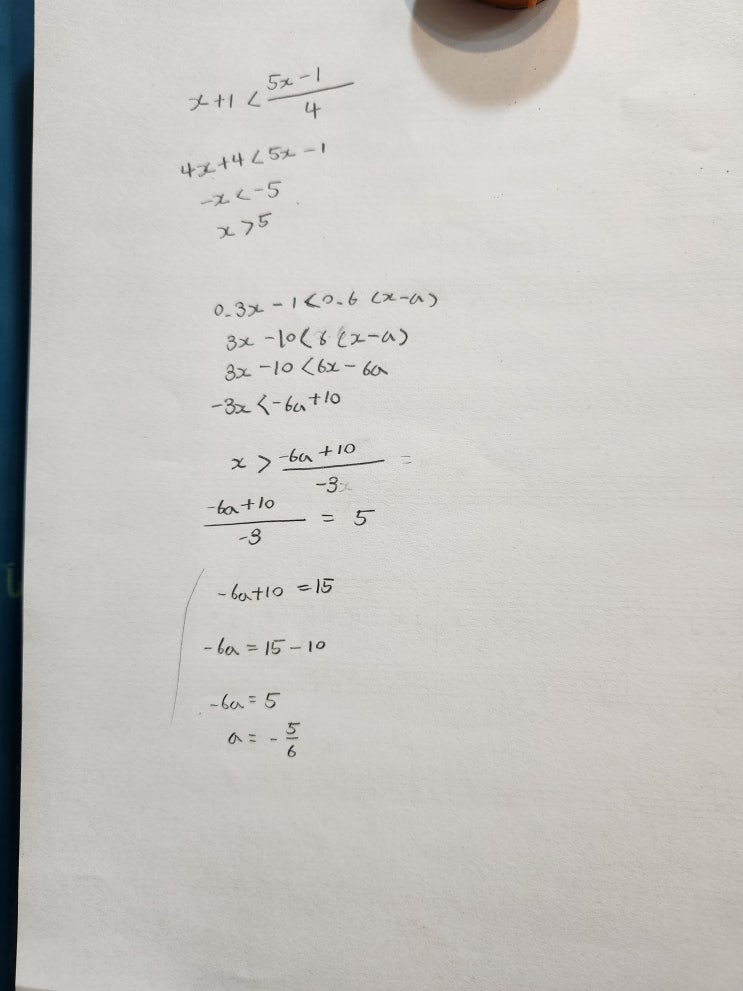 x+1 < (5x-1)/4
4x+4<5x-1
-x<-5
x>5
0.3x-1<0.6(x-a)
3x-10<6(x-a)
3x-10<6x-6a
-3x<-6a+10
x > (-6a+10)/-3 =
(-6a+10)/-3 = 5
-6a+10=15
-6a=15-10
-6a=5
a=-5/6